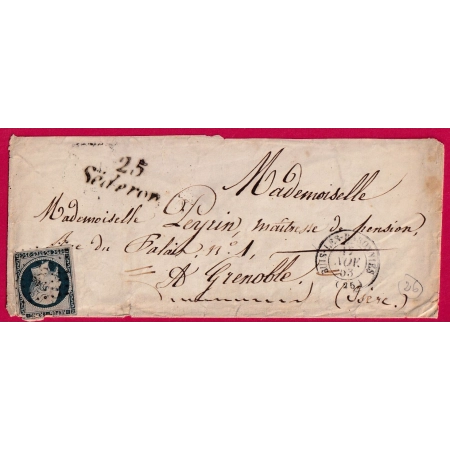 25
Séderon
Mademoiselle
Mademoiselle Peyrin, maîtresse de pension,
du Palais n° 1,
A Grenoble
(Isère.)
BUIS-LES-BARONNIES
NOV.
53
(25)
26